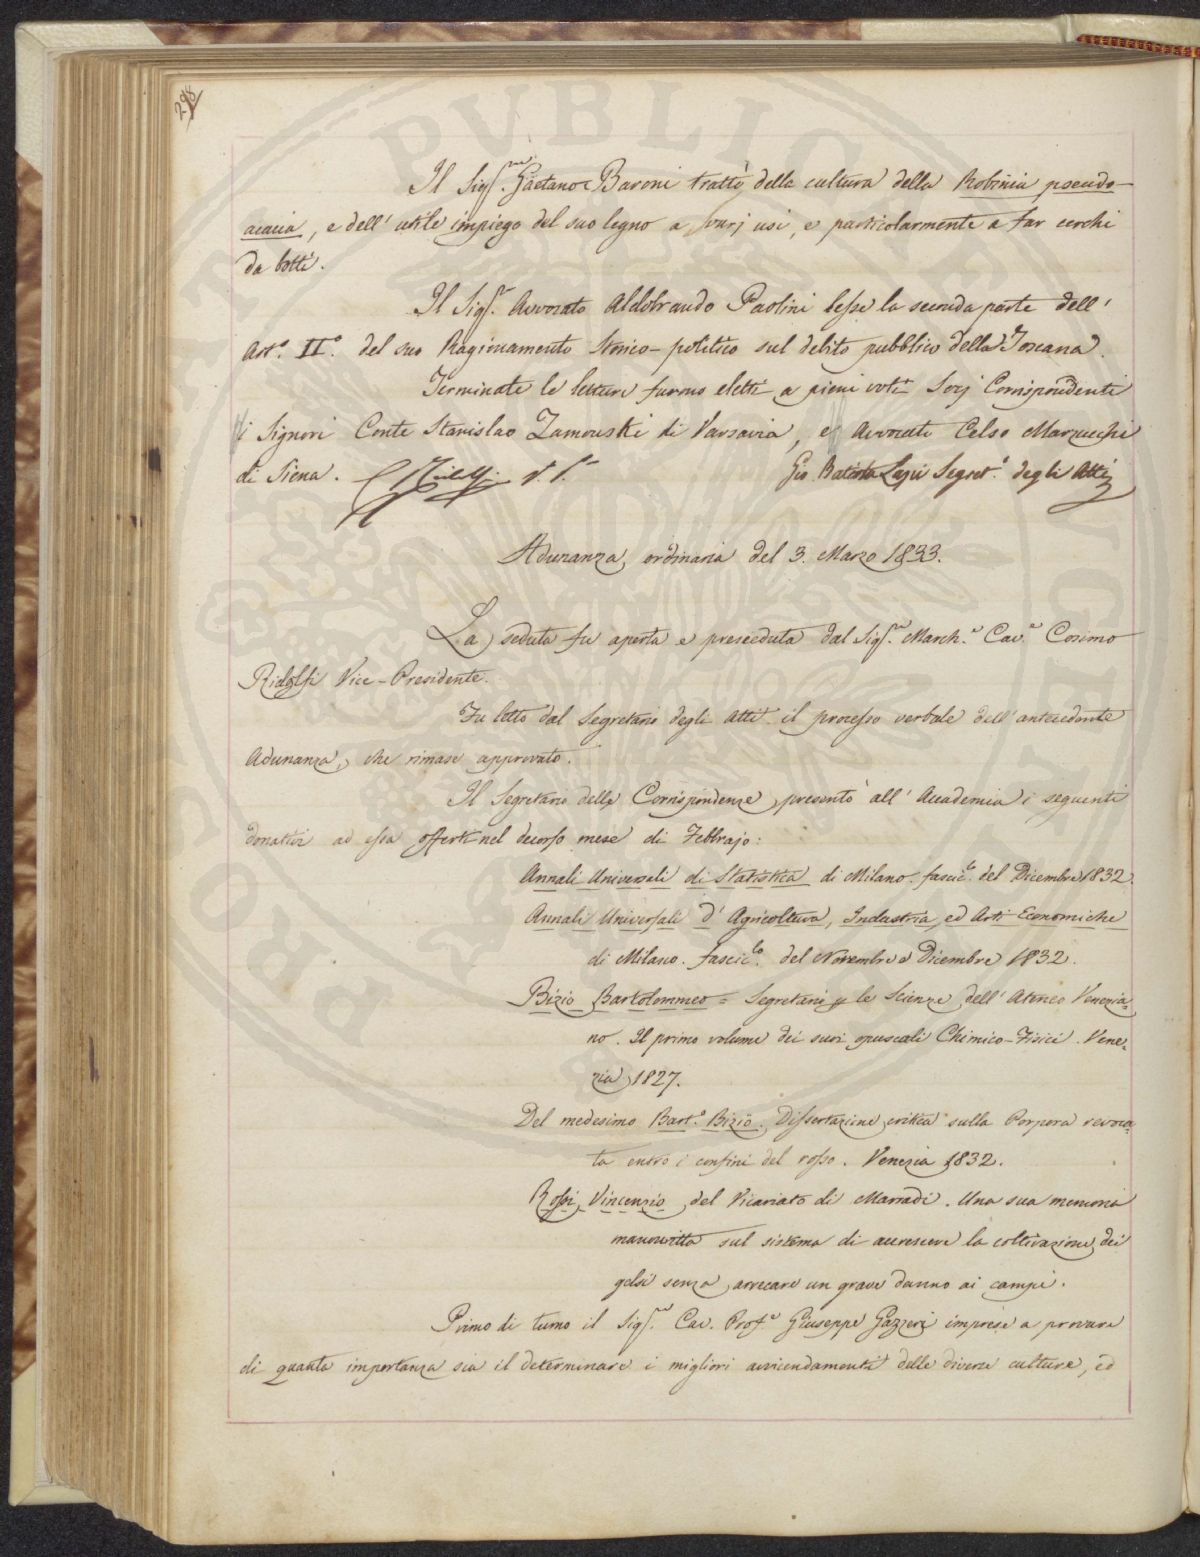 298
Il Sig.re Gaetano Baroni trattò della cultura della Robinia pseudo-
acacia, e dell' utile impiego del suo legno a varj usi, e particolarmente a far cerchi
da botti.
Il Sig.r Avvocato Aldobrando Paolini lesse la seconda parte dell'
Art.o II.o del suo Ragionamento Storico-politico sul debito pubblico della Toscana.
Terminate le letture furono eletti a pieni voti Socj Corrispondenti
i Signori Conte Stanislao Zamouski di Varsavia, e Avvocato Celso Marzucchi
di Siena. C Ridolfi V. P.e Gio. Batista Lapi Segret.o degli Atti
Adunanza ordinaria del 3. Marzo 1833.
La seduta fu aperta e preseduta dal Sig.r March.e Cav.e Cosimo
Ridolfi Vice-Presidente.
Fu letto dal Segretario degli Atti il processo verbale dell' antecedente
Adunanza, che rimase approvato.
Il Segretario delle Corrispondenze presentò all' Accademia i seguenti
donativi ad essa offerti nel decorso mese di Febbrajo:
Annali Universali di Statistica di Milano. fascic.lo del Dicembre 1832.
Annali Universali d' Agricoltura, Industria, ed Arti Economiche
di Milano. fascic.lo del Novembre e Dicembre 1832.
Bizio Bartolommeo = Segretario p le Scienze dell' Ateneo Venezia=
no. Il primo volume dei suoi opuscoli Chimico-Fisici. Vene=
zia 1827.
Del medesimo Bart.o Bizio. Dissertazione critica sulla Porpora revoca=
ta entro i confini del rosso. Venezia 1832.
Rossi Vincenzio del Vicariato di Marradi. Una sua memoria
manoscritta sul sistema di accrescere la coltivazione dei
gelsi senza arrecare un grave danno ai campi.
Primo di turno il Sig.r Cav. Prof.e Giuseppe Gazzeri imprese a provare
di quanta importanza sia il determinare i migliori avvicendamenti delle diverse culture, ed
PUBLIC